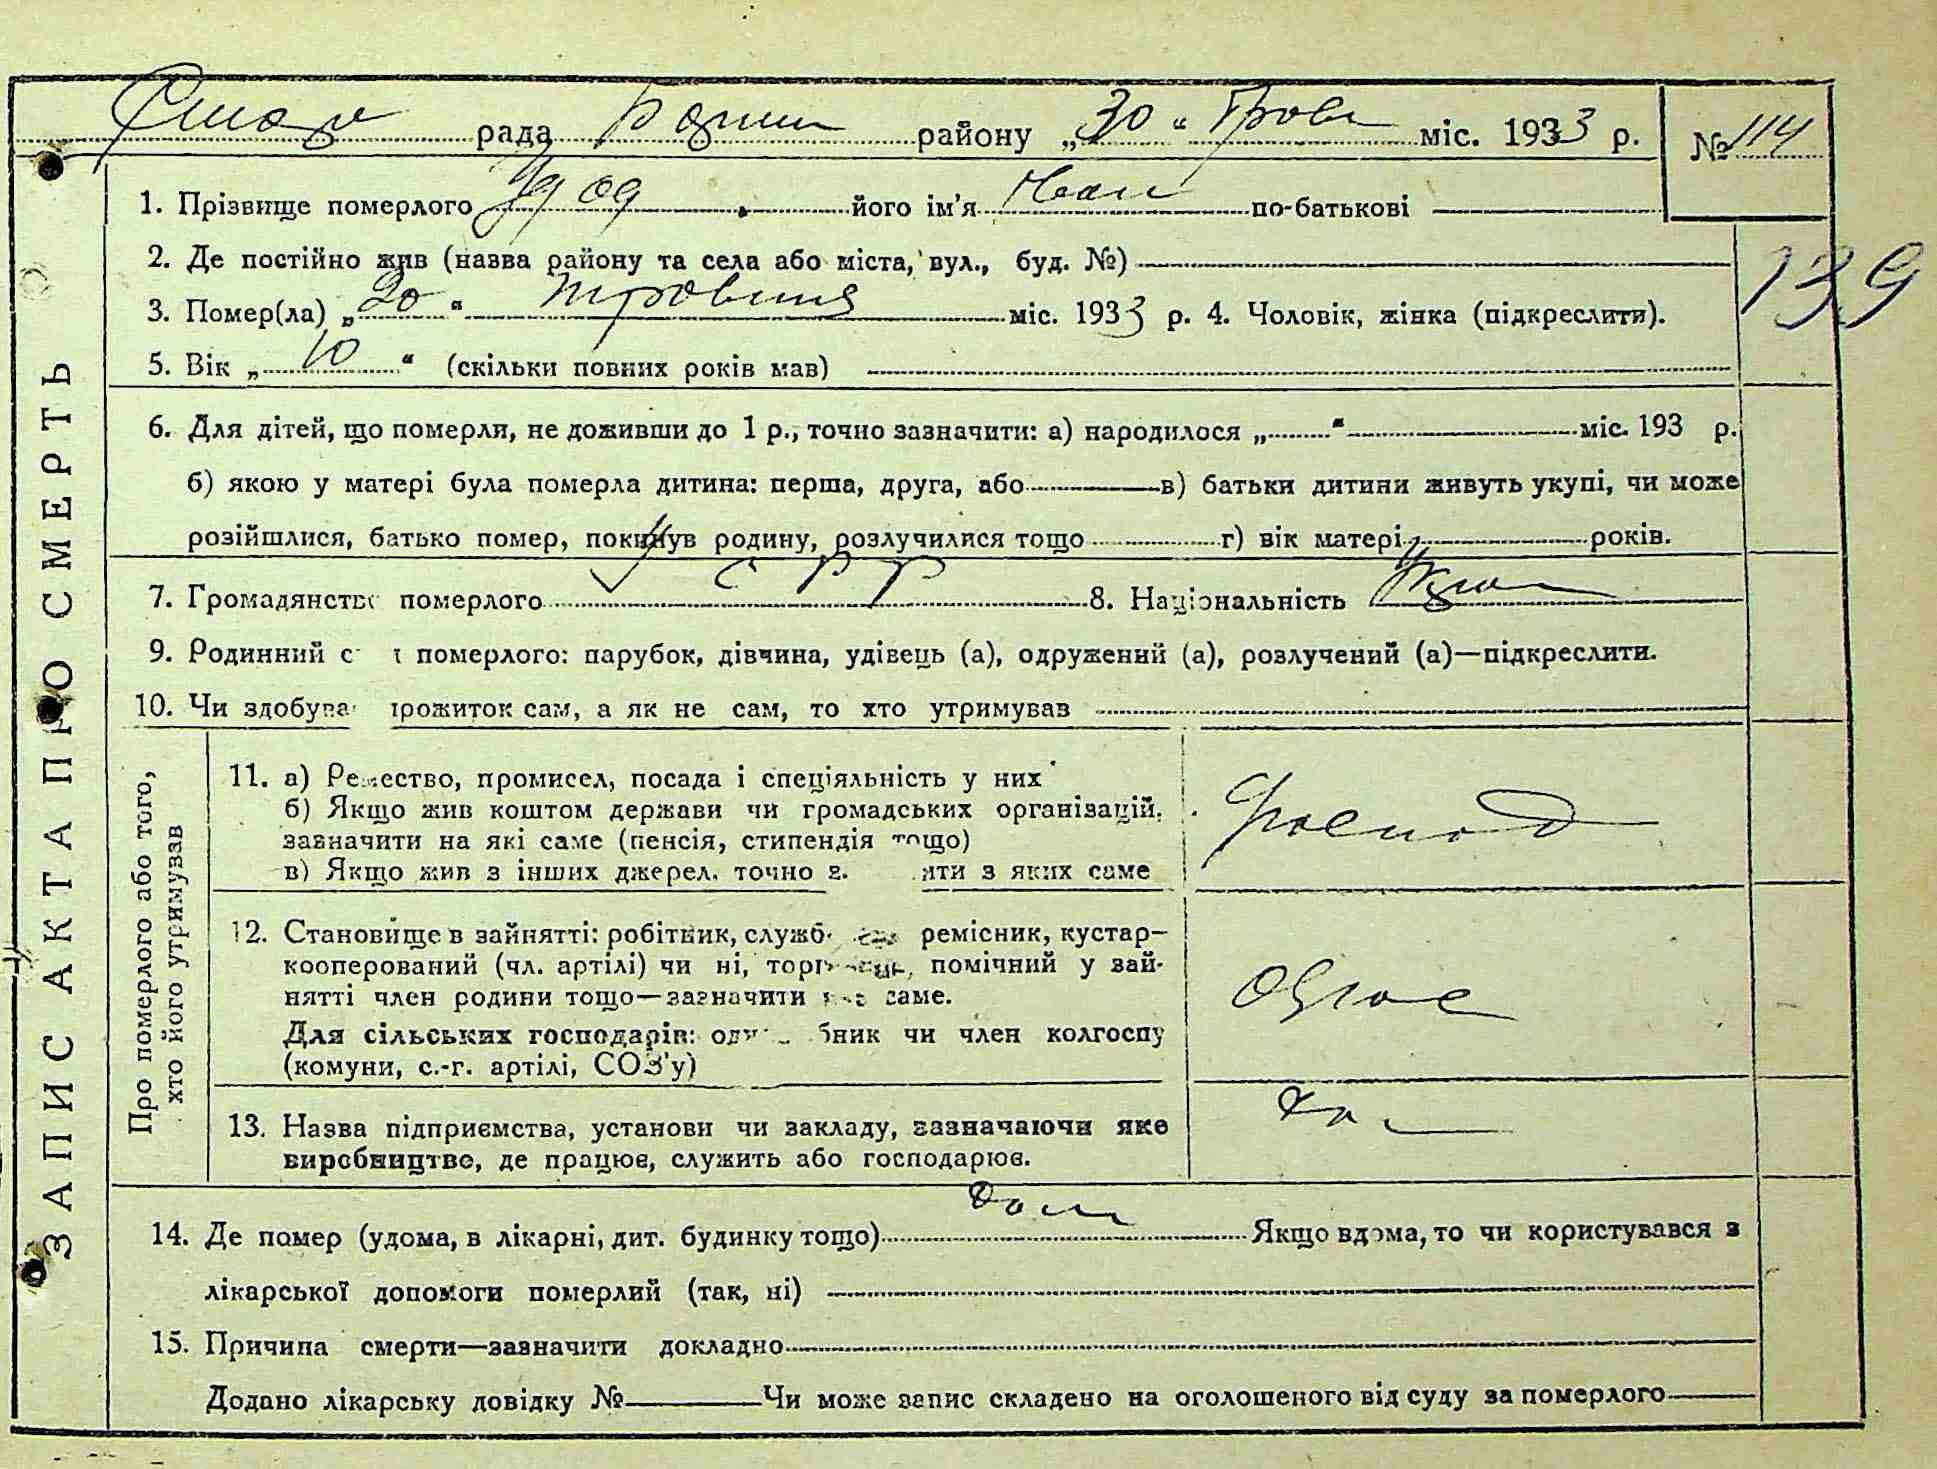 рада району „30“ міс. 1933 р. № 114
1. Прізвище померлого його ім'я Иван по-батькові
2. Де постійно жив (назва району та села або міста, вул., буд. №)
139
3. Помер(ла) „20“ травня міс. 1933 р. 4. Чоловік, жінка (підкреслити).
5. Вік „10“ (скільки повних років мав)
6. Для дітей, що померли, не доживши до 1 р., точно зазначити: а) народилося „ “ міс. 193 р.
б) якою у матері була померла дитина: перша, друга, або в) батьки дитини живуть укупі, чи може
розійшлися, батько помер, покинув родину, розлучилися тощо г) вік матері років.
7. Громадянство померлого УСРР 8. Національність
9. Родинний с т померлого: парубок, дівчина, удівець (а), одружений (а), розлучений (а)—підкреслити.
10. Чи здобува прожиток сам, а як не сам, то хто утримував
ЗАПИС АКТА ПРО СМЕРТЬ
Про померлого або того,
хто його утримував
11. а) Ремество, промисел, посада і спеціяльність у них
б) Якщо жив коштом держави чи громадських організацій,
зазначити на які саме (пенсія, стипендія тощо)
в) Якщо жив з інших джерел, точно з ити з яких саме
Господ
12. Становище в зайнятті: робітник, служб ремісник, кустар—
кооперований (чл. артілі) чи ні, торговець, помічний у зай-
нятті член родини тощо—зазначити яке саме.
Для сільських господарів: од бник чи член колгоспу
(комуни, с.-г. артілі, СОЗ'у)
Однос
13. Назва підприємства, установи чи закладу, зазначаючи яке
виробництво, де працює, служить або господарює.
14. Де помер (удома, в лікарні, дит. будинку тощо) дома Якщо вдома, то чи користувався з
лікарської допомоги померлий (так, ні)
15. Причина смерти—зазначити докладно
Додано лікарську довідку № Чи може запис складено на оголошеного від суду за померлого